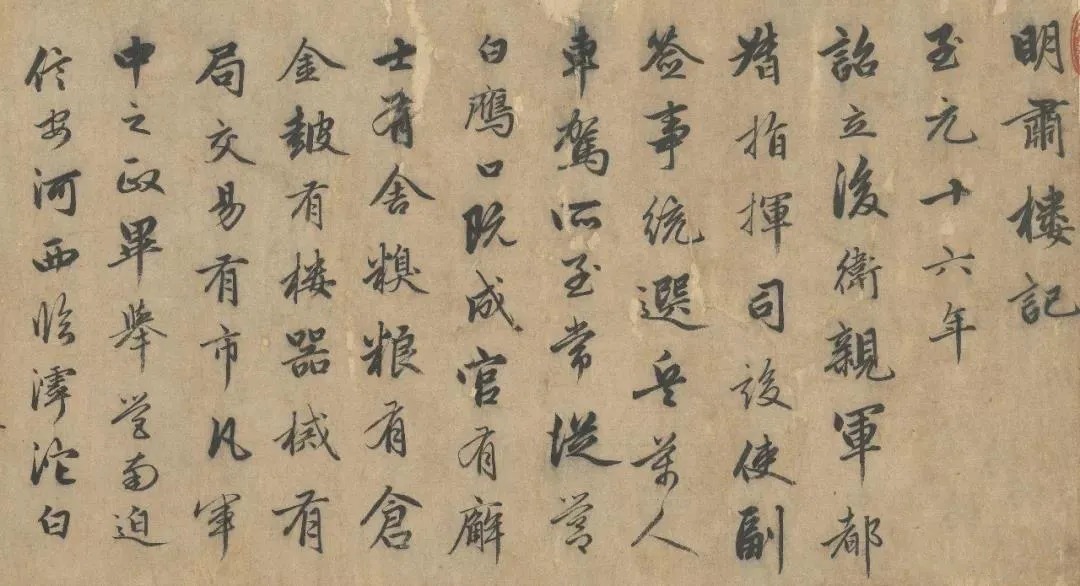 明肅樓記
至元十六年
詔立後衛親軍都
指揮司設使副
簽事統選兵萬人
車駕所至常從營
白鴈口既成官有廨
士有舍糗粮有倉
金皷有樓器械有
局交易有市凡軍
中之政畢舉營南迫
信安河西臨滹沱白